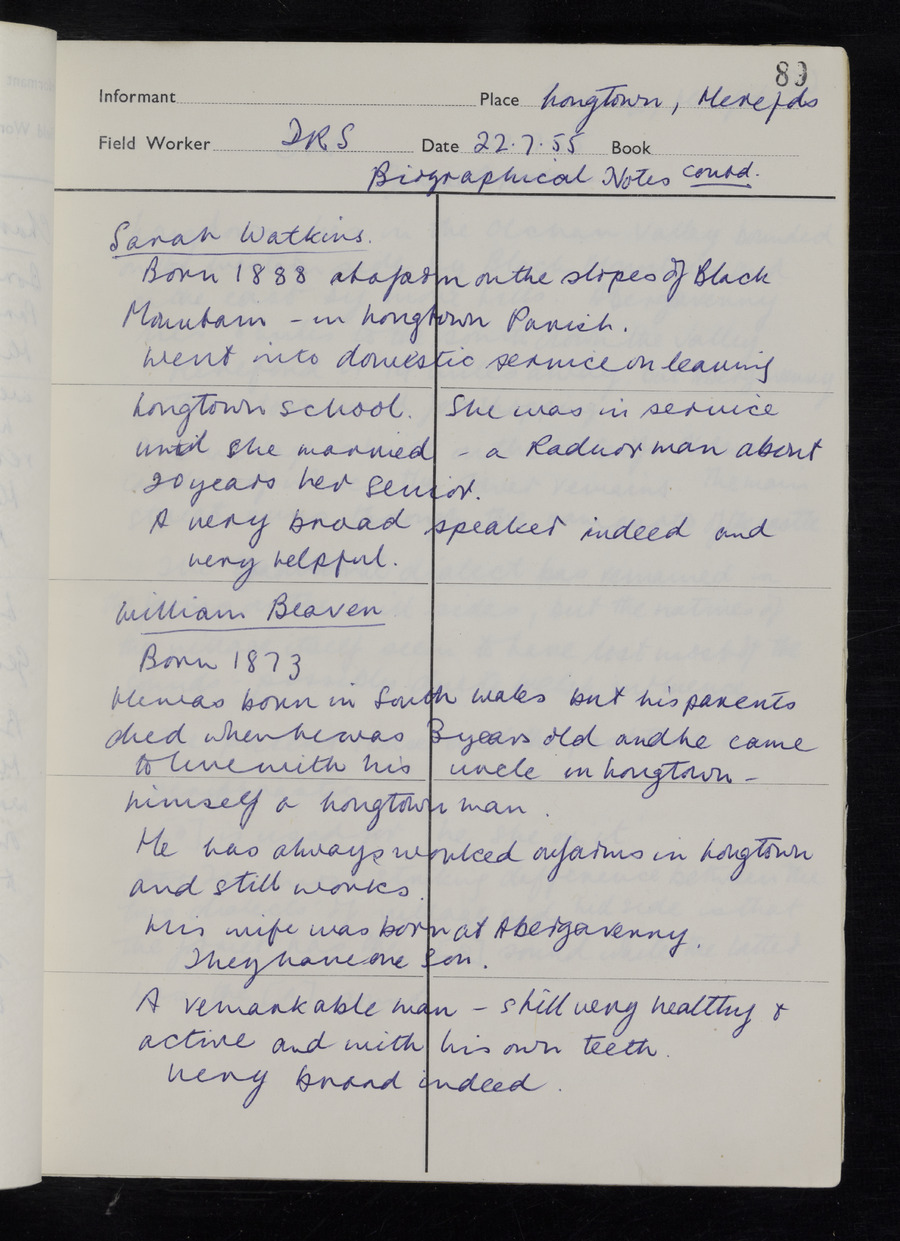 89
Informant Place Longtown, Herefds
Field Worker DRS Date 22.7.55 Book
Biographical Notes contd.
Sarah Watkins.
Born 1888 at a farm on the slopes of Black
Mountain - in Longtown Parish.
Went into domestic service on leaving
Longtown school. She was in service
until she married - a Radnor man about
20 years her senior.
A very broad speaker indeed and
very helpful.
William Beaven
Born 1873
He was born in South Wales but his parents
died when he was 3 years old and he came
to live with his uncle in Longtown -
himself a Longtown man.
He has always worked on farms in Longtown
and still works.
His wife was born at Abergavenny.
They have one son.
A remarkable man - still very healthy &
active and with his own teeth.
Very broad indeed.